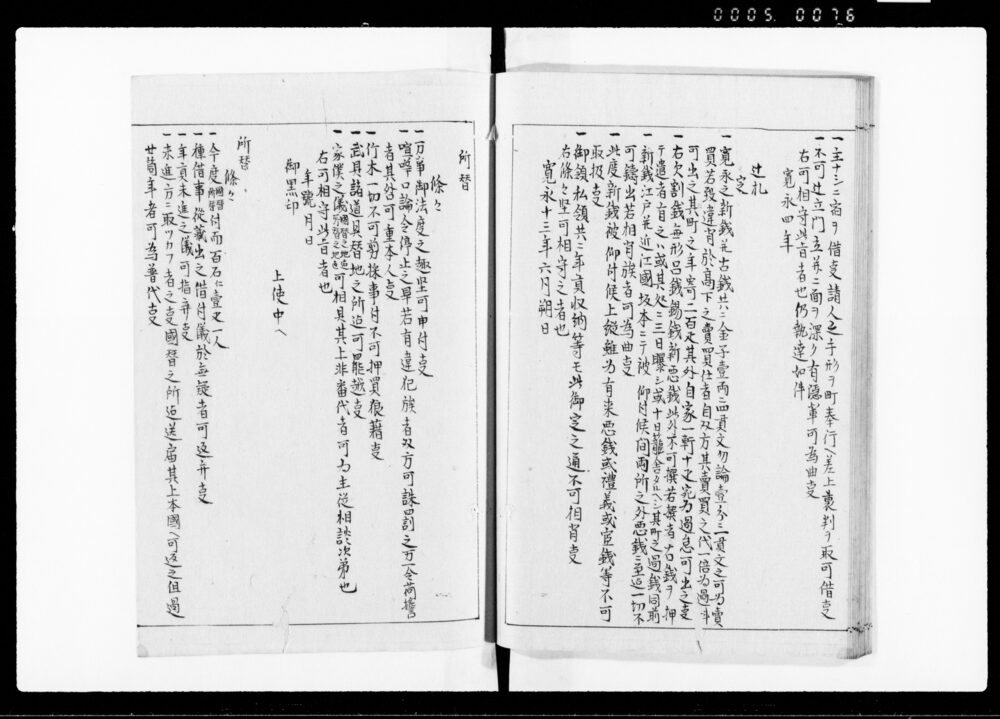 0005.0076
一主ナシニ宿ヲ借支請人之手形ヲ町奉行ヘ差上裏判ヲ取可借支
一不可辻立門立并ニ面ヲ深ク有隠輩可為曲支
右可相守此旨者也仍執達如件
寛永四年
辻札
定
一寛永之新銭并古銭共ニ金子壹両ニ四貫文勿論壹分ニ壹貫文之可為賣
買若致違背於高下之賣買仕者自双方其賣買之代一倍為過斗
可出之其町之年寄二百疋其外自家一軒十疋宛為過怠可出之支
一右欠割銭無形呂銭錫銭新悪銭此外不可撰若撰者ナ右銭ヲ押
テ遣者有之ハ或其処ニ三日曝シ或十日籠舎タルヘシ其町之過銭同前
一新銭江戸并近江國坂本ニテ被 仰付候間両所之外悪銭ニ至迄一切不
可鋳出若相背族者可為曲支
一此度新銭被 仰付候上縦雖為有来悪銭或禮義或官銭等不可
取扱支
一御領私領共ニ年貢収納等モ此御定之通不可相背支
右條々堅可相守之者也
寛永十三年六月朔日
所替
條々
一万事御法度之趣堅可申付支
一喧嘩口論令停止之畢若有違犯族者双方可誅罰之万一令荷擔
者其外可重本人支
一竹木一切不可剪採事付不可押買狼藉支
一武具諸道具替地之所迄可罷越支
一家僕之儀國替之地迄所替之地迄可相具其上非番代者可為主従相談次第也
右可相守此旨者也
年號月日
御黒印
上使中ヘ
所替
條々
一今度國替所替付而百石仁壹疋一人
一種借事従蔵出之借付儀於無疑者可返弁支
一年貢未進之儀可捐弃支
一未進方ニ取ツカフ者之支國替之所迄送届其上本國ヘ可返之但過
廿箇年者可為普代支